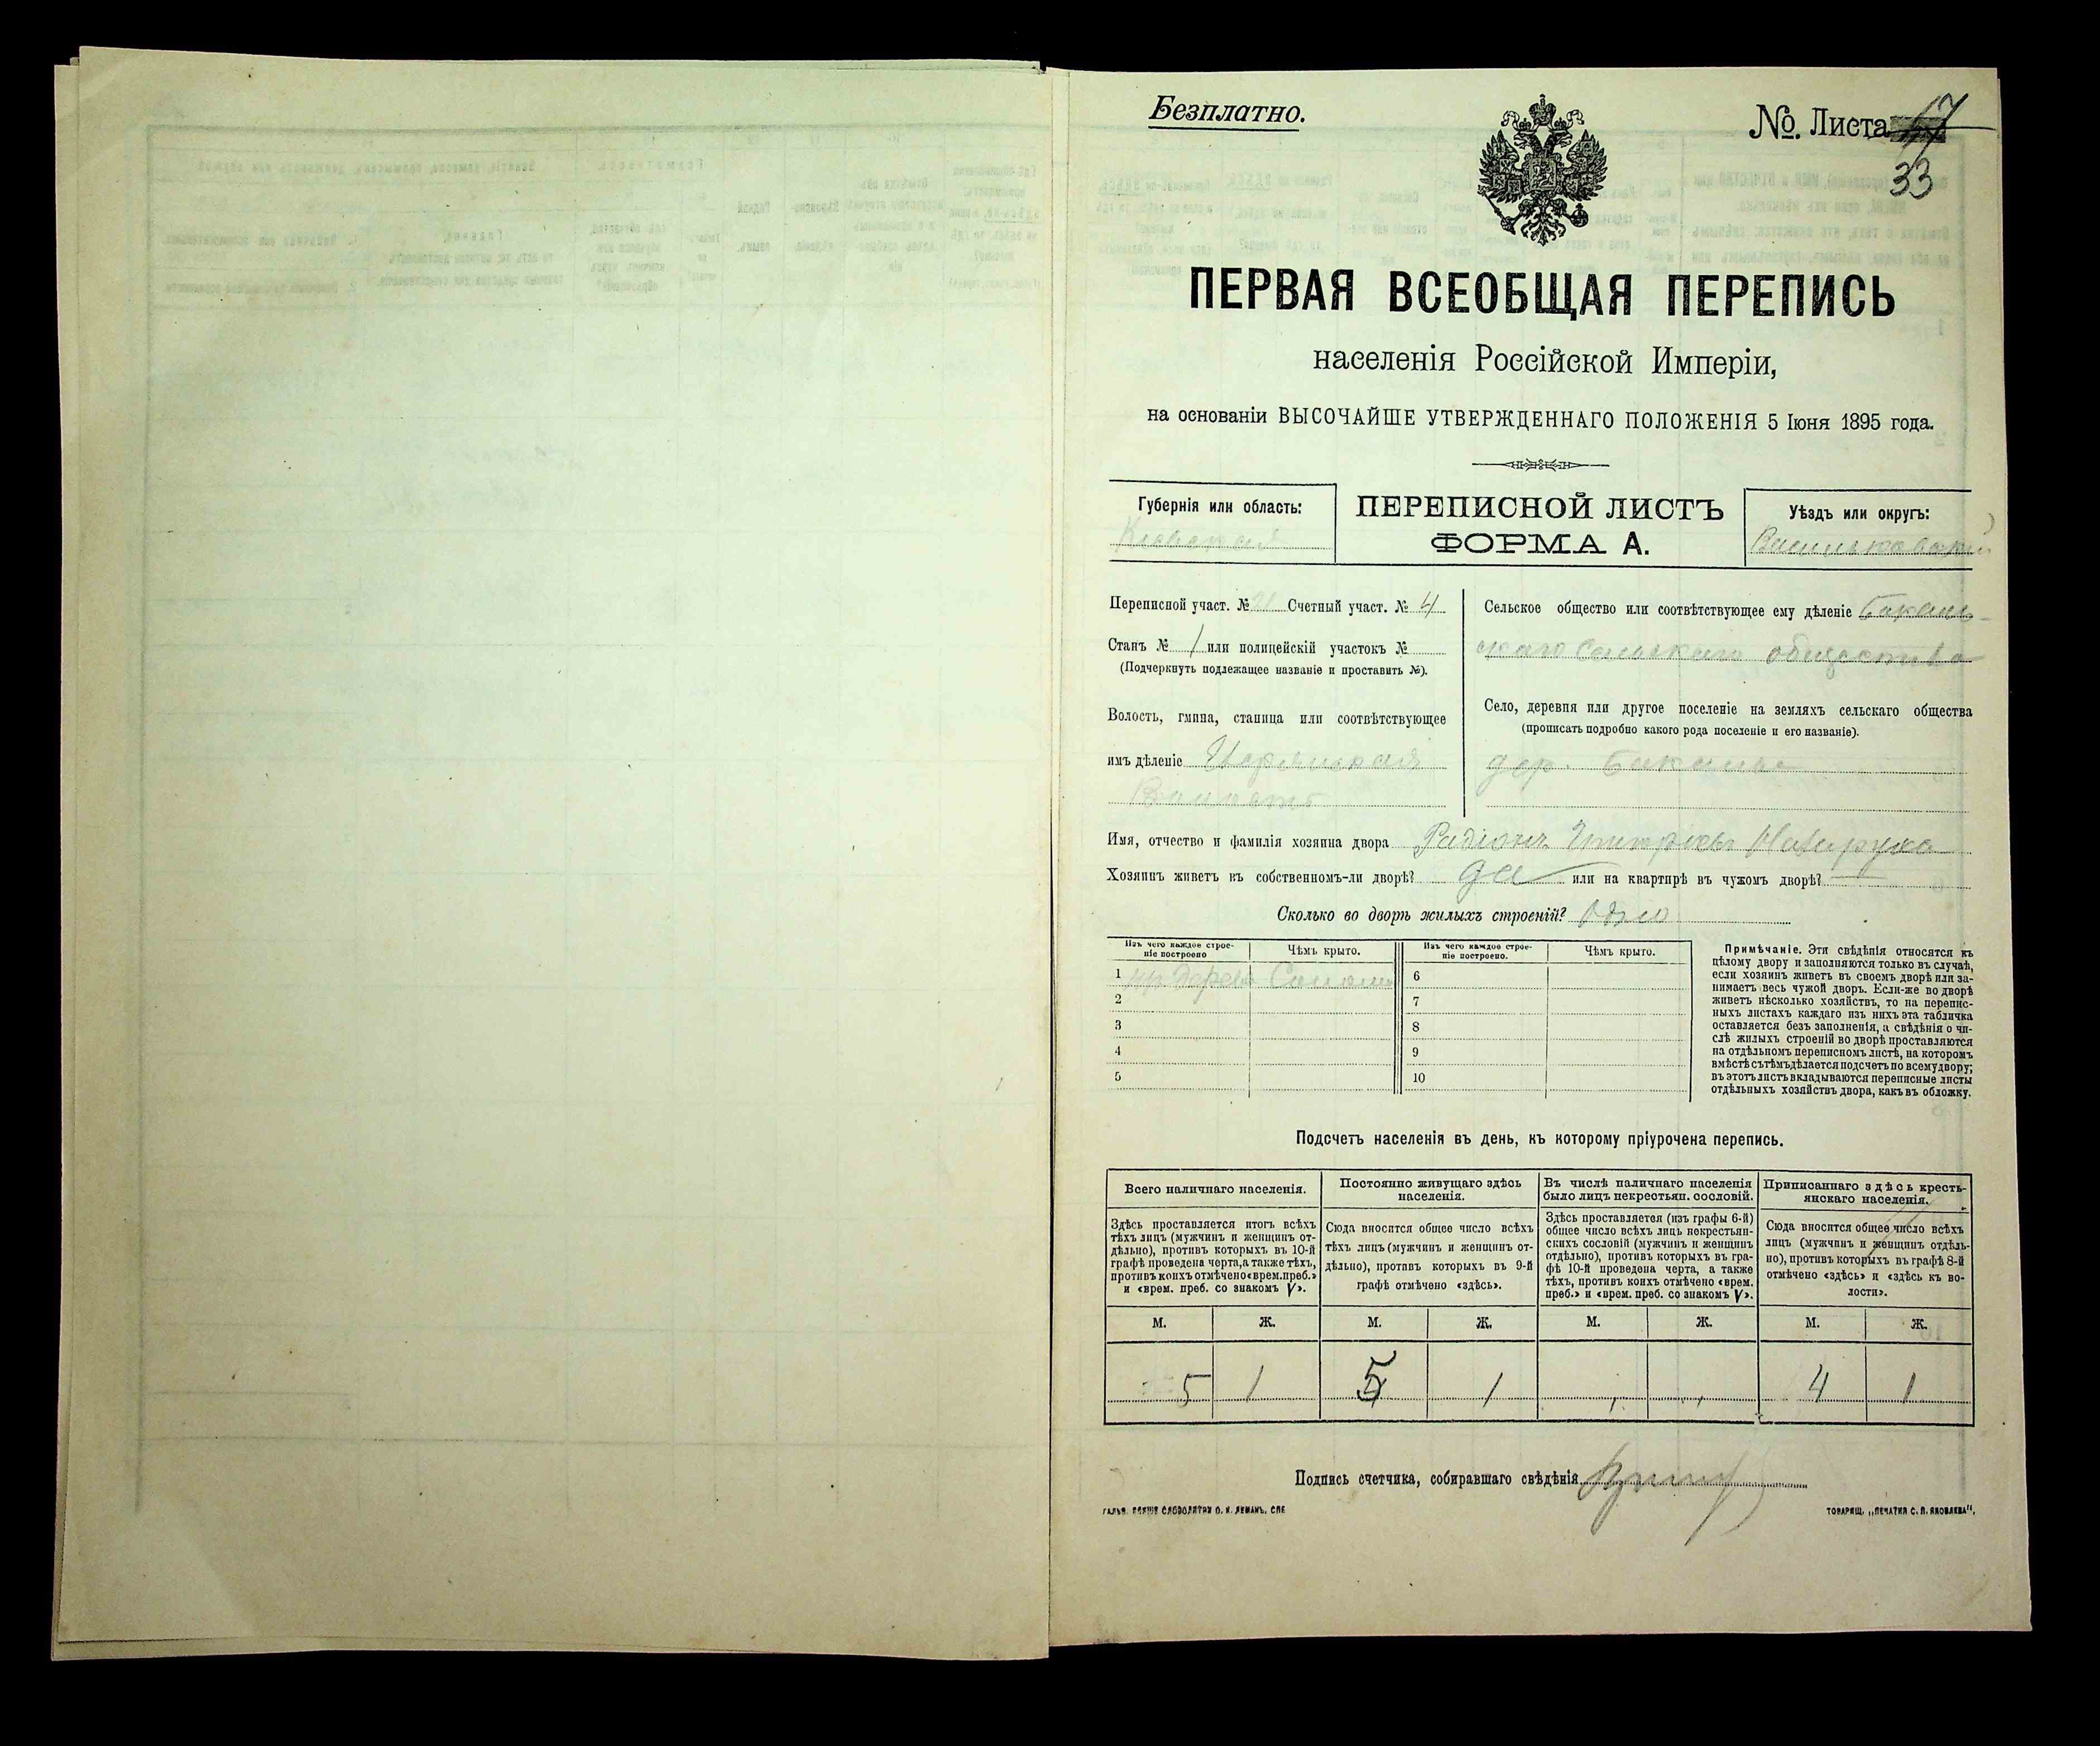 Безплатно.
№. Листа 17
33
ПЕРВАЯ ВСЕОБЩАЯ ПЕРЕПИСЬ
населенія Россійской Имперіи,
на основаніи ВЫСОЧАЙШЕ УТВЕРЖДЕННАГО ПОЛОЖЕНІЯ 5 Іюня 1895 года.
Губернія или область:
Кіевская
ПЕРЕПИСНОЙ ЛИСТЪ
ФОРМА А.
Уѣздъ или округъ:
Васильковскій
Переписной участ. № Счетный участ. № 4
Станъ № 1 или полицейскій участокъ №
(Подчеркнуть подлежащее названіе и проставить №).
Волость, гмина, станица или соотвѣтствующее
имъ дѣленіе
Волость
Сельское общество или соотвѣтствующее ему дѣленіе
сельскаго общества
Село, деревня или другое поселеніе на земляхъ сельскаго общества
(прописать подробно какого рода поселеніе и его названіе).
дер.
Имя, отчество и фамилія хозяина двора Радіонъ
Хозяинъ живетъ въ собственномъ-ли дворѣ? да или на квартирѣ въ чужомъ дворѣ?
Сколько во дворѣ жилыхъ строеній? Одно
Изъ чего каждое строе-
ніе построено
Чѣмъ крыто.
Изъ чего каждое строе-
ніе построено.
Чѣмъ крыто.
1 Дерева Солома 6
2 7
3 8
4 9
5 10
Примѣчаніе. Эти свѣдѣнія относятся къ
цѣлому двору и заполняются только въ случаѣ,
если хозяинъ живетъ въ своемъ дворѣ или за-
нимаетъ весь чужой дворъ. Если-же во дворѣ
живетъ нѣсколько хозяйствъ, то на перепис-
ныхъ листахъ каждаго изъ нихъ эта табличка
оставляется безъ заполненія, а свѣдѣнія о чи-
слѣ жилыхъ строеній во дворѣ проставляются
на отдѣльномъ переписномъ листѣ, на которомъ
вмѣстѣ съ тѣмъ дѣлается подсчетъ по всему двору;
въ этотъ листъ вкладываются переписные листы
отдѣльныхъ хозяйствъ двора, какъ въ обложку.
Подсчетъ населенія въ день, къ которому пріурочена перепись.
Всего наличнаго населенія.
Здѣсь проставляется итогъ всѣхъ
тѣхъ лицъ (мужчинъ и женщинъ от-
дѣльно), противъ которыхъ въ 10-й
графѣ проведена черта, а также тѣхъ,
противъ коихъ отмѣчено «врем. преб.»
и «врем. преб. со знакомъ V».
Постоянно живущаго здѣсь
населенія.
Сюда вносится общее число всѣхъ
тѣхъ лицъ (мужчинъ и женщинъ от-
дѣльно), противъ которыхъ въ 9-й
графѣ отмѣчено «здѣсь».
Въ числѣ наличнаго населенія
было лицъ некрестьян. сословій.
Здѣсь проставляется (изъ графы 6-й)
общее число всѣхъ лицъ некрестьян-
скихъ сословій (мужчинъ и женщинъ
отдѣльно), противъ которыхъ въ гра-
фѣ 10-й проведена черта, а также
тѣхъ, противъ коихъ отмѣчено «врем.
преб.» и «врем. преб. со знакомъ V».
Приписаннаго здѣсь кресть-
янскаго населенія.
Сюда вносится общее число всѣхъ
лицъ (мужчинъ и женщинъ отдѣль-
но), противъ которыхъ въ графѣ 8-й
отмѣчено «здѣсь» и «здѣсь къ во-
лости».
М. Ж. М. Ж. М. Ж. М. Ж.
5 1 5 1 4 1
Подпись счетчика, собиравшаго свѣдѣнія
СЛОВОЛИТНИ О. И. ЛЕМАНЪ. СПБ
ТОВАРИЩ. „ПЕЧАТНЯ С. П. ЯКОВЛЕВА“.